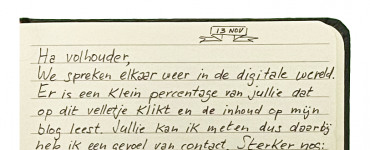 13 NOV
Ha volhouder,
We spreken elkaar weer in de digitale wereld.
Er is een klein percentage van jullie dat
op dit velletje klikt en de inhoud op mijn
blog leest. Jullie kan ik meten dus daarbij
heb ik een gevoel van contact. Sterker nog: